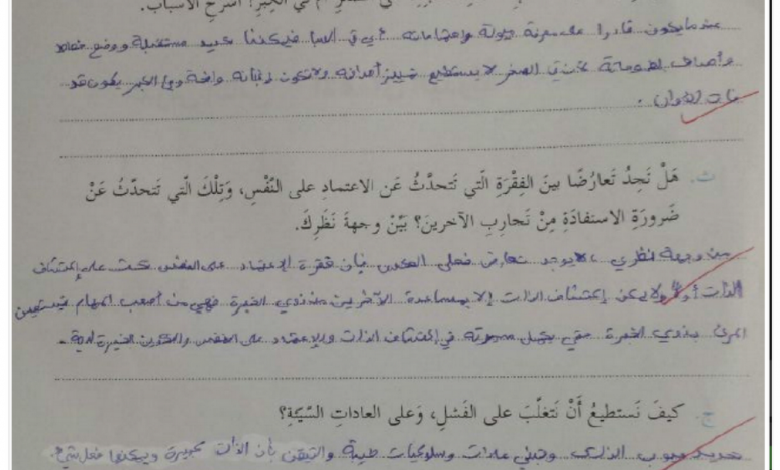 في الكِبَرِ؟ اشرَحِ الأسبابَ.
عندما يكون قادرا على معرفة ميوله واهتماماته
وأهداف لطموحاته في الصغر لا يستطيع تمييز أهدافه ولا تكون رغباته واضحة وفي الكبر يكون قد
فات الأوان.
ث. هَلْ نَجِدُ تَعارُضًا بينَ الفِقْرَةِ الَّتي تَتحدَّثُ عَنِ الاعتمادِ على النَّفْسِ، وَتِلْكَ الَّتي تَتحدَّثُ عَنْ
ضَرورَةِ الاستفادَةِ مِنْ تَجارِبِ الآخرينَ؟ بَيِّنْ وجهةَ نَظَرِكَ.
من وجهة نظري لا يوجد تعارض فعلى العكس فإن فقرة الإعتماد على النفس تحث على إكتشاف
الذات أولا ولا يمكن إكتشاف الذات إلا بمساعدة الآخرين من ذوي الخبرة فهي من أصعب المهام فيستعين
المرئ بذوي الخبرة حتى في إكتشاف الذات والإعتماد على النفس الخبرة لديه.
ج. كيفَ نَستطيعُ أَنْ نَتغلَّبَ على الفَشلِ، وَعلى العاداتِ السَّيِّئةِ؟
عيوب الذات وتبني عادات وسلوكيات طيبة والتيقن بأن الذات كبيرة ويمكنها فعل